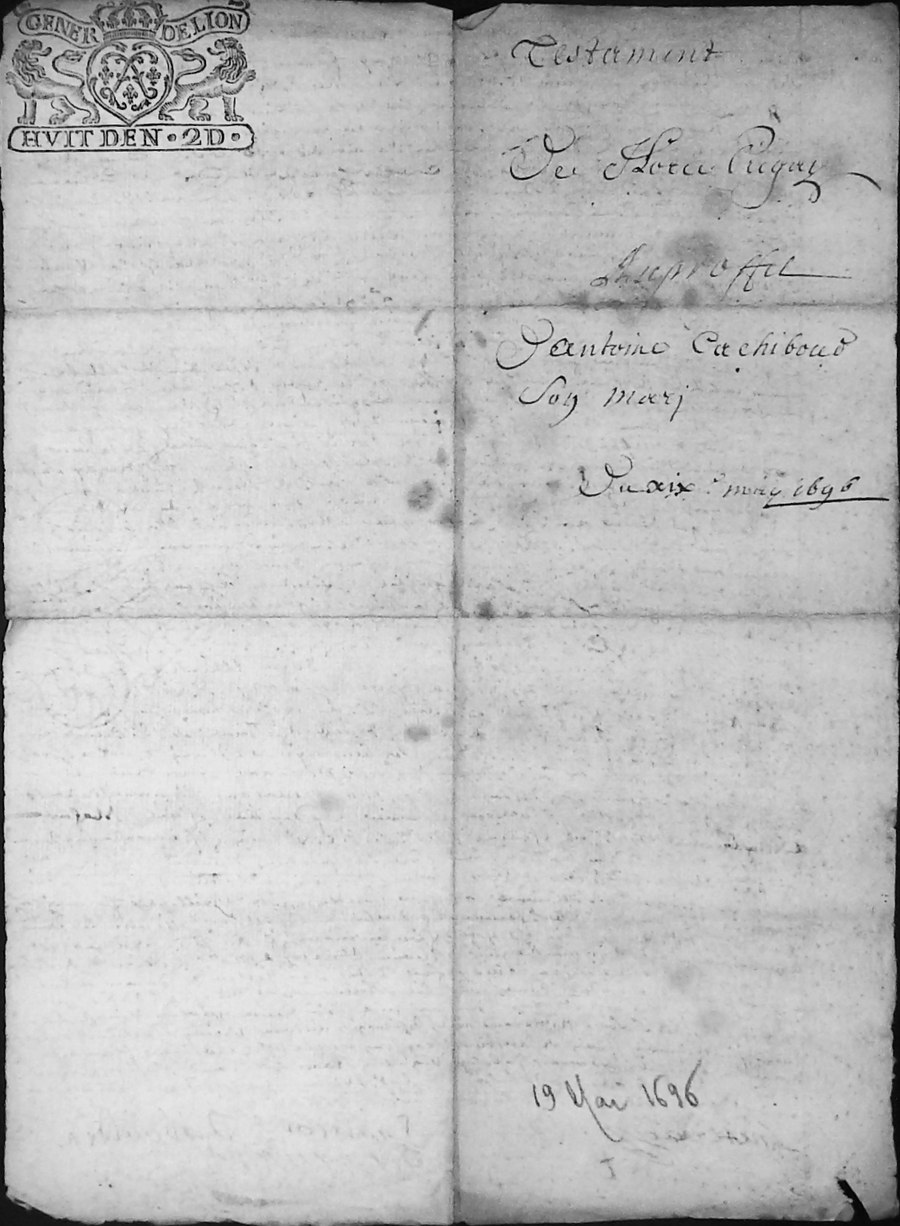 GENER DE LION
HVIT DEN · 2D ·
Testament
De Florie Pugay
Au proffit
D'antoine Cachiboud
Son marj
Du xix may 1696
19 Mai 1696